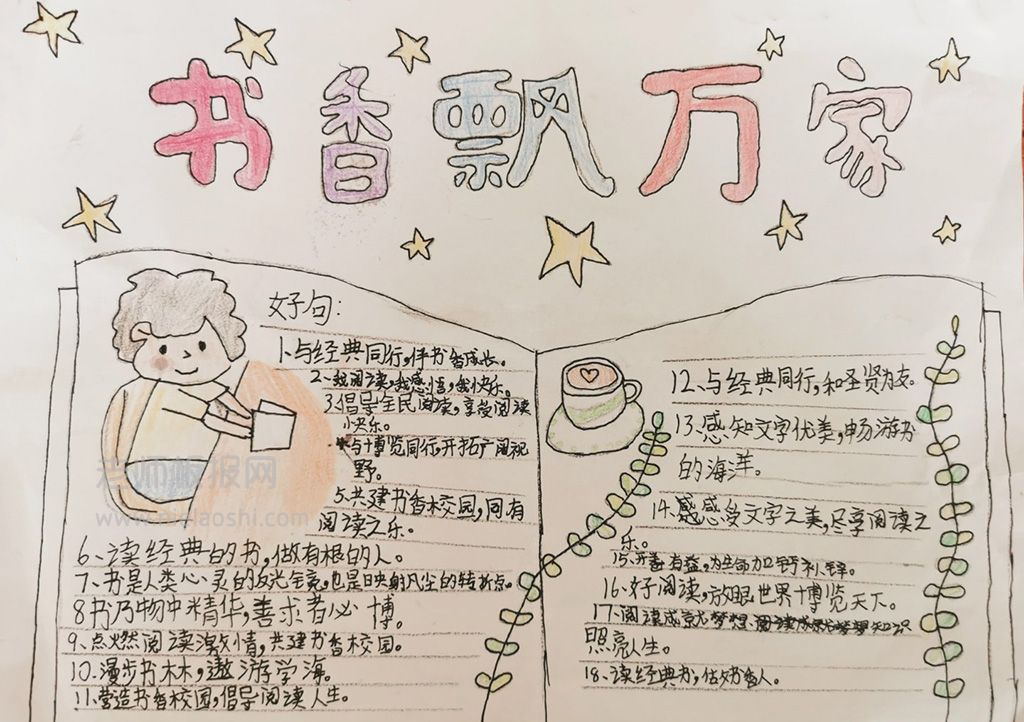 书香飘万家
好句:
1、与经典同行,伴书香成长。
2、我阅读,我感悟,我快乐。
3、倡导全民阅读,享受阅读
快乐。
与博览同行,开拓广阔视
野。
5、共建书香校园,同有
阅读之乐。
6、读经典的书,做有根的人。
7、书是人类心灵的反光镜,也是日映朝凡尘的转折点。
8书乃物中精华,善求者必博。
9、点燃阅读激情,共建书香校园。
10、漫步书林,遨游学海。
11、营造书香校园,倡导阅读人生。
12、与经典同行,和圣贤为友。
13、感知文字优美,畅游书
的海洋。
14、感感多文字之美,尽享阅读之
乐。
15、开卷有益,为生命加钙补锌。
16、好阅读,放眼世界博览天下。
17、阅读成就梦想,知识
照亮人生。
18、读经典书,做书香人。
老师板报网
www.gielaoshi.com